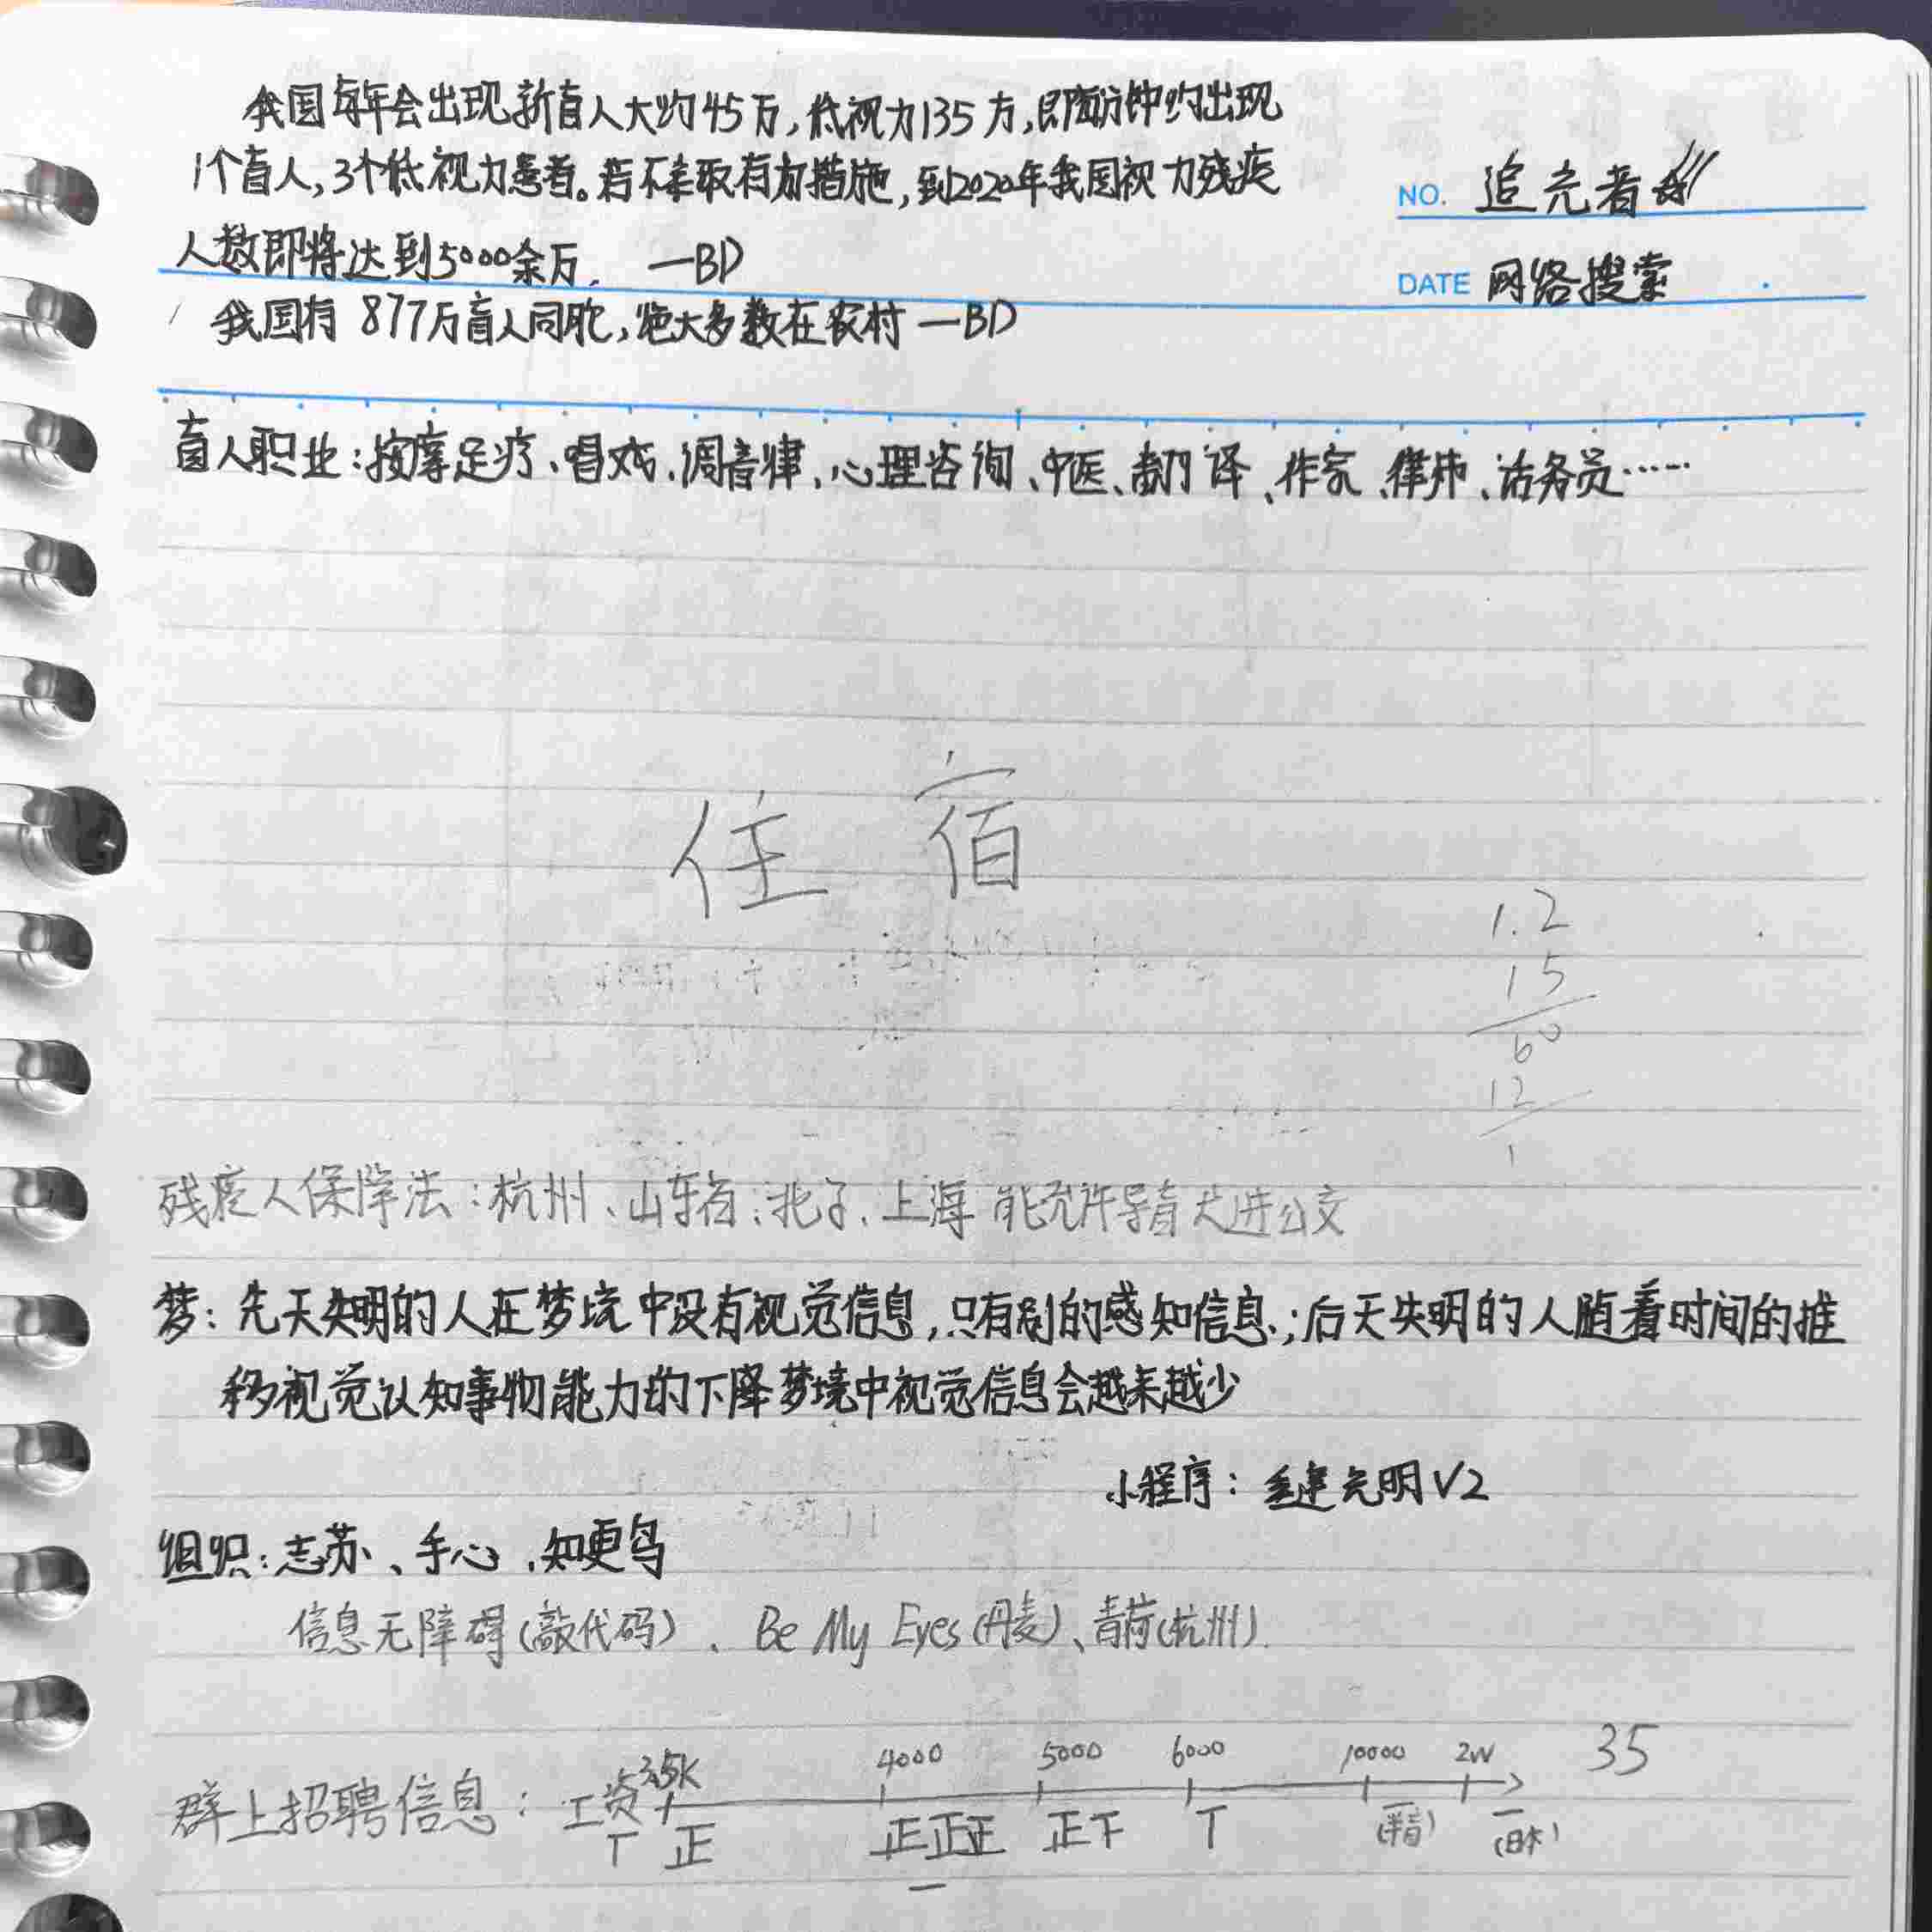 我国每年会出现新盲人大约45万,低视力135万,即每分钟约出现
1个盲人,3个低视力患者。若不采取有力措施,到2020年我国视力残疾
人数即将达到5000余万. —BD
我国有 877万盲人同胞,绝大多数在农村 —BD
NO. 追光者
DATE 网络搜索
盲人职业:按摩足疗、唱戏、调音律、心理咨询、中医、翻译、作家、律师、话务员……
住宿
1.2
15
60
12
1
残疾人保障法:杭州、山东省、北京、上海 能允许导盲犬进公交
梦:先天失明的人在梦境中没有视觉信息,只有别的感知信息;后天失明的人随着时间的推
移视觉认知事物能力的下降梦境中视觉信息会越来越少
小程序: 重建光明V2
组织:志苏、手心、知更鸟
信息无障碍(敲代码)、Be My Eyes(丹麦)、青荷(杭州).
3.5K 4000 5000 6000 10000 2W 35
群上招聘信息: 工资
T 正 正正正一 正下 T 一(半盲) 一(日本)